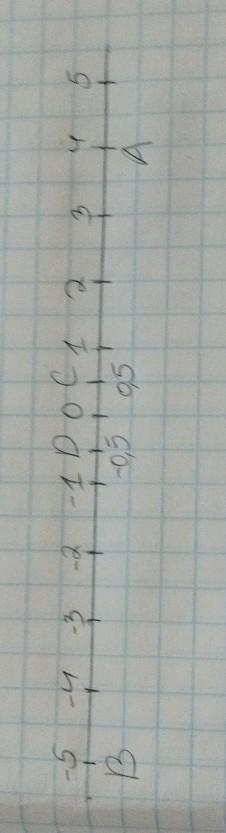 -5 -4 -3 -2 -1 D 0 C 1 2 3 4 5
B -0,5 0,5 A